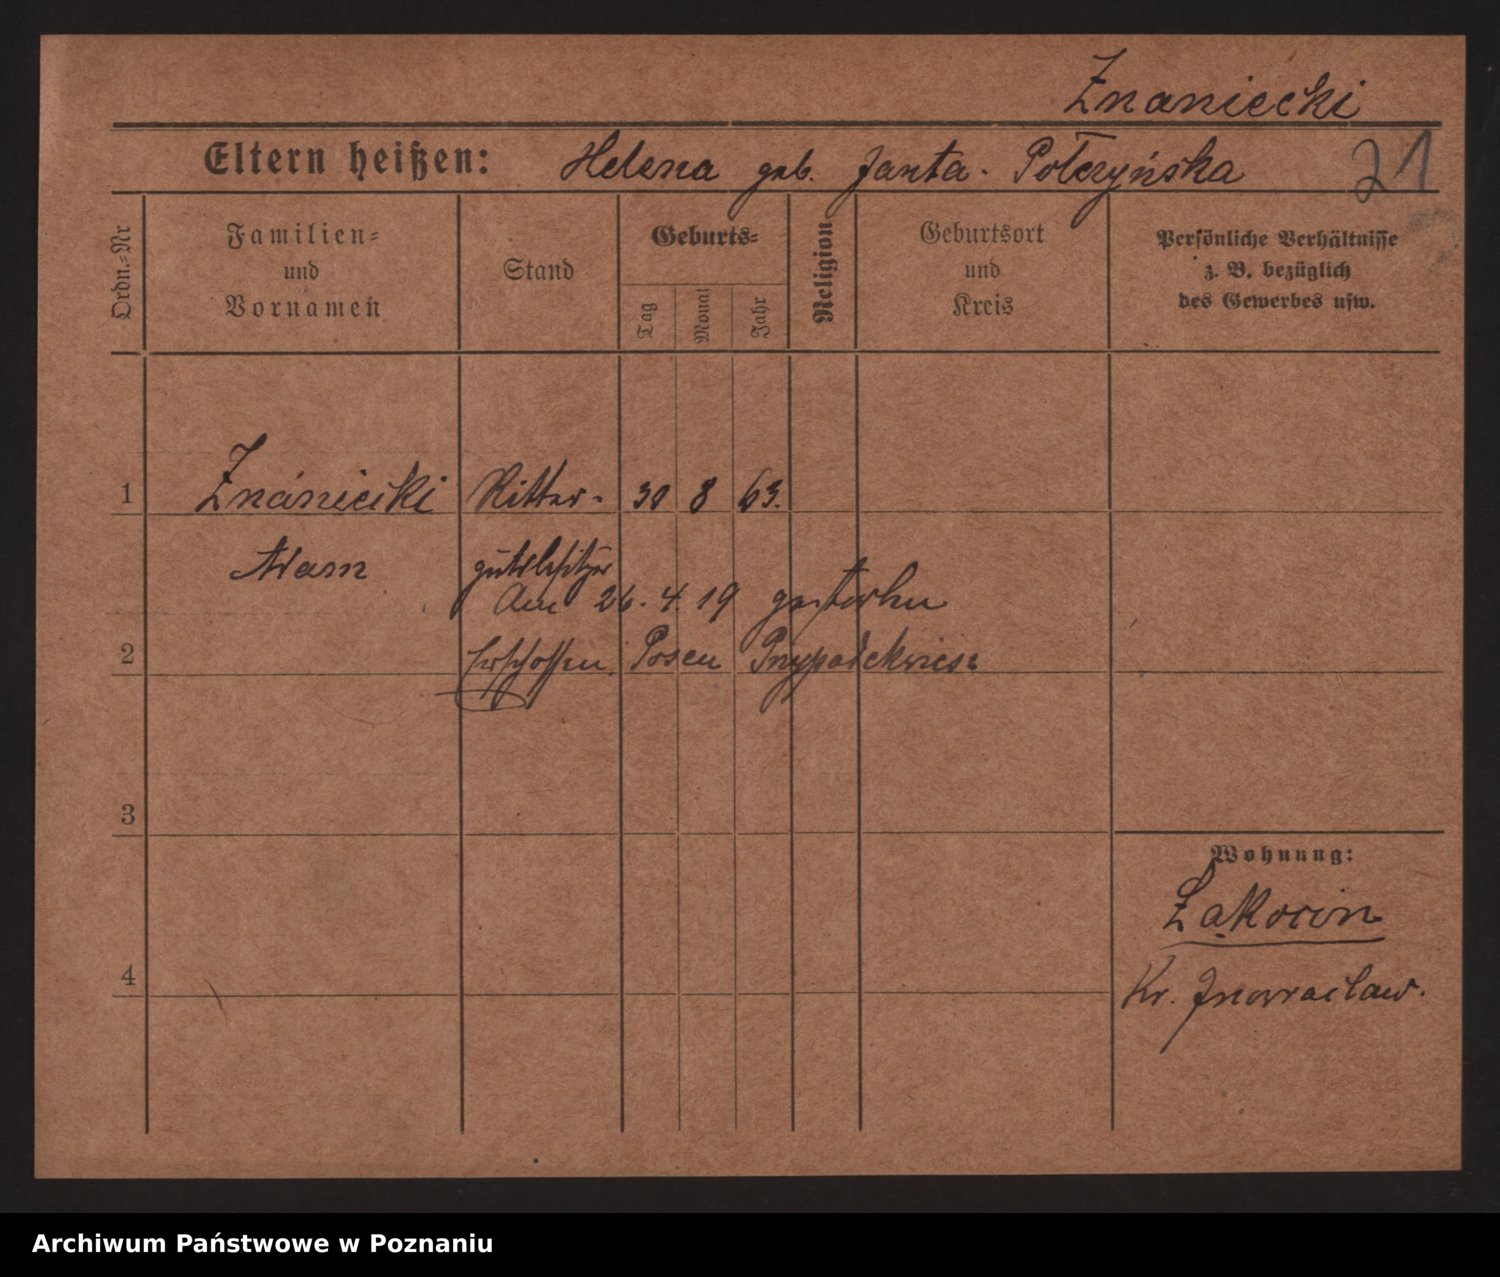 Znaniecki
Eltern heißen: Helena geb. Janta-Połczyńska
21
Ordn.-Nr
Familien-
und
Vornamen
Stand
Geburts-
Tag
Monat
Jahr
Religion
Geburtsort
und
Kreis
Persönliche Verhältnisse
z. B. bezüglich
des Gewerbes usw.
1 Znaniecki Ritter- 30 8 63.
Adam gutsbesitzer
Am 26.4.19 gestorben
2 Erschossen. Posen
3
Wohnung:
Łakocin
4
Kr. Inowraclaw.
Archiwum Państwowe w Poznaniu